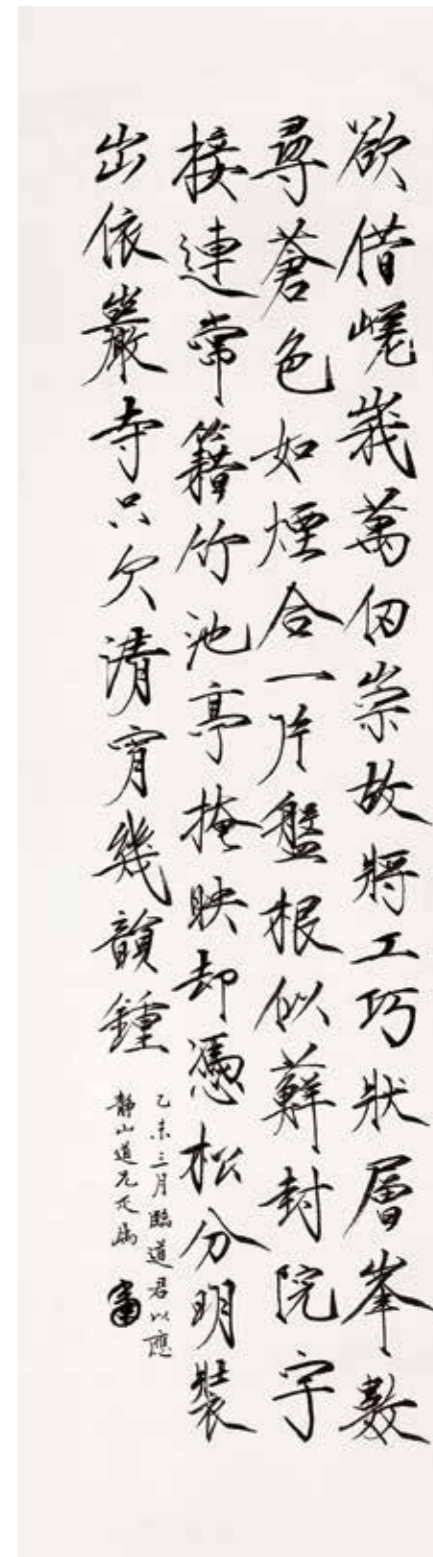 欲借嵯峩萬仞崇故將工巧狀層峯數
尋蒼色如煙合一片盤根似蘚封院宇
接連常籍竹池亭掩映却憑松分明裝
出依巖寺只欠清宵幾韻鍾
乙未三月臨道君以應
靜山道兄大